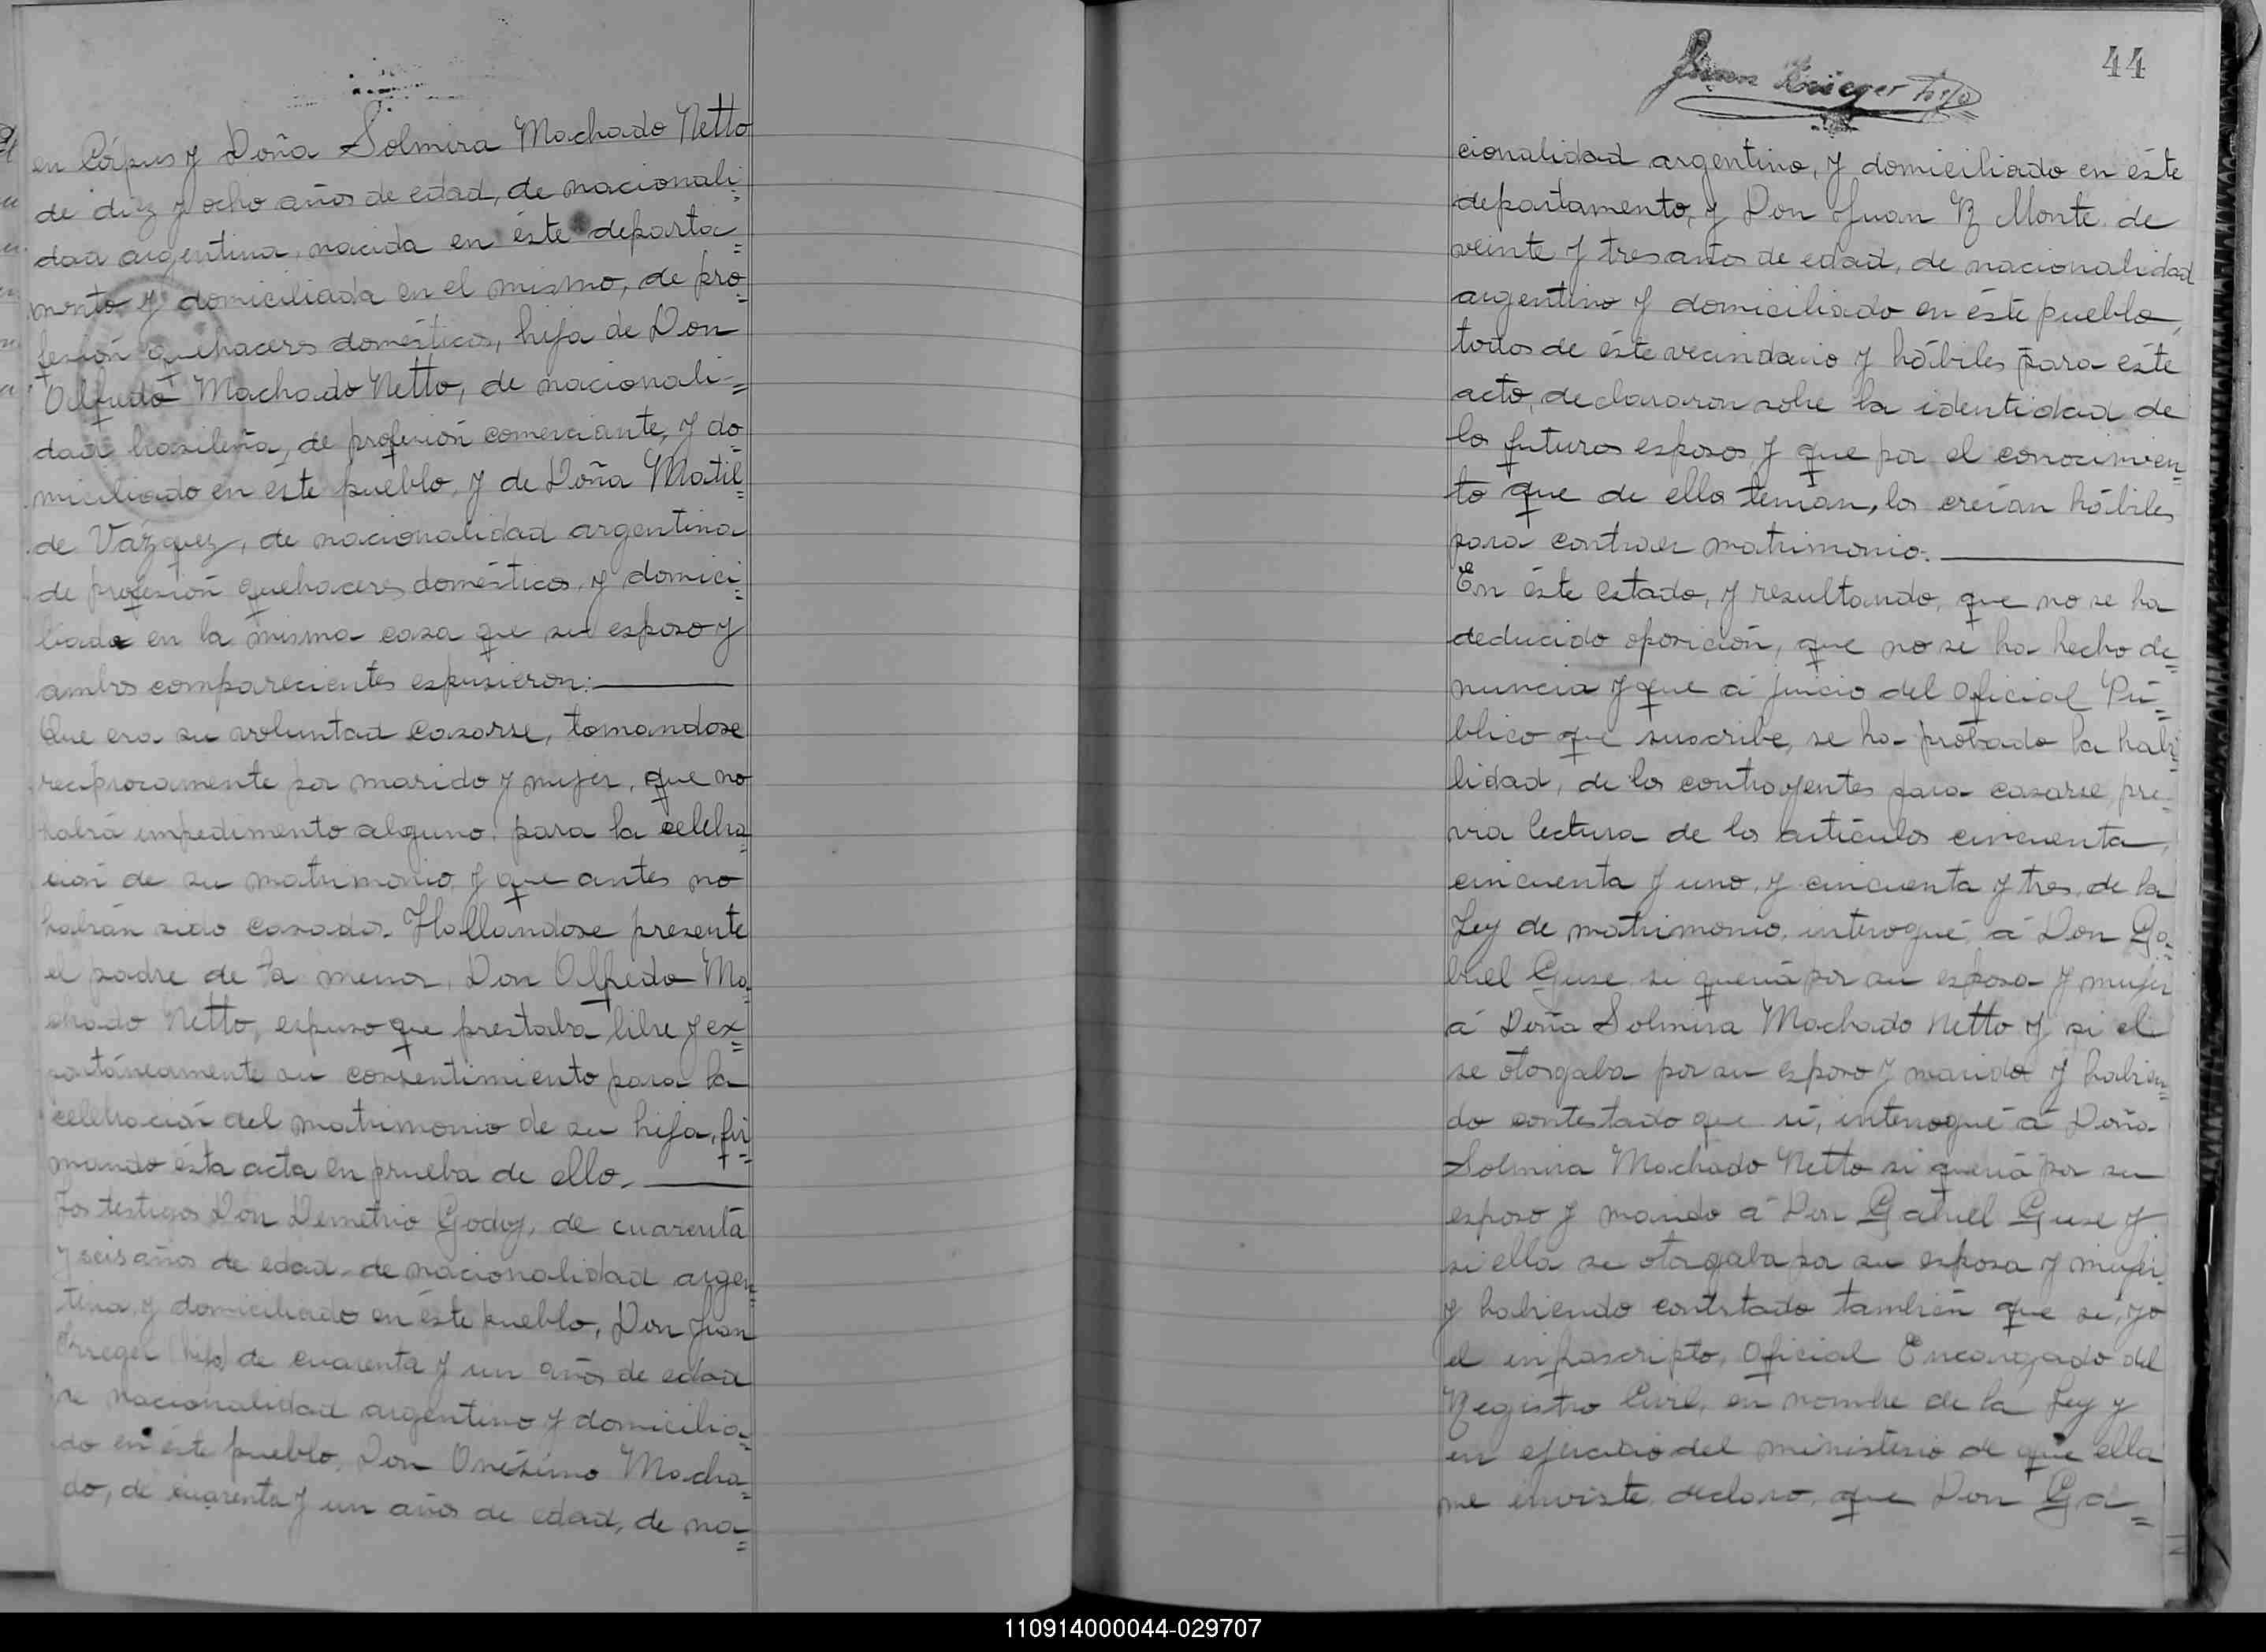 en Córpus y Doña Solmira Machado Netto
de diez y ocho años de edad, de nacionali=
dad argentina, nacida en éste departa=
mento y domiciliada en el mismo, de pro=
fesión quehaceres domésticos, hija de Don
Alfredo Machado Netto, de nacionali=
dad brasileña, de profesión comerciante, y do=
miciliado en éste pueblo, y de Doña Matil=
de Vázquez, de nacionalidad argentina
de profesión quehaceres domésticos, y domici=
liada en la misma casa que su esposo y
ambos comparecientes espusieron:
Que era su voluntad casarse, tomandose
reciprocamente por marido y mujer, que no
había impedimento alguno para la celebra=
ción de su matrimonio, y que antes no
habían sido casados. Hallandose presente
el padre de la menor, Don Alfredo Ma=
chado Netto, espuso que prestaba libre y ex=
pontáneamente su consentimiento para la
celebración del matrimonio de su hija, fir=
mando ésta acta en prueba de ello.
Los testigos Don Demetrio Godoy, de cuarenta
y seis años de edad, de nacionalidad argen=
tina, y domiciliado en éste pueblo, Don Juan
Krieger (hijo) de cuarenta y un años de edad
de nacionalidad argentino y domicilia=
do en éste pueblo, Don Onésimo Macha=
do, de cuarenta y un años de edad, de na=
44
Juan Krieger hijo
cionalidad argentino, y domiciliado en éste
departamento, y Don Juan R Monte de
veinte y tres años de edad, de nacionalidad
argentino y domiciliado en éste pueblo,
todos de éste vecindario y hábiles para éste
acto, declararon sobre la identidad de
los futuros esposos y que por el conocimien=
to que de ellos tenían, los creían hábiles
para contraer matrimonio.
En éste estado, y resultando, que no se ha
deducido oposición, que no se ha hecho de=
nuncia y que á juicio del Oficial Pú=
blico que suscribe, se ha probado la habi=
lidad, de los contrayentes para casarse, pre=
via lectura de los artículos cincuenta,
cincuenta y uno, y cincuenta y tres, de la
Ley de matrimonio, interrogué, á Don Ga=
briel Guse si quería por su esposa y mujer
á Doña Solmira Machado Netto y si el
se otorgaba por su esposo y marido y habien=
do contestado que sí, interrogué á Doña
Solmira Machado Netto si quería por su
esposo y marido á Don Gabriel Guse y
si ella se otorgaba por su esposa y mujer,
y habiendo contestado también que sí, yo
el infrascripto, Oficial Encargado del
Registro Civil, en nombre de la Ley y
en ejercicio del ministerio de que ella
me inviste, declaro, que Don Ga=
110914000044-029707